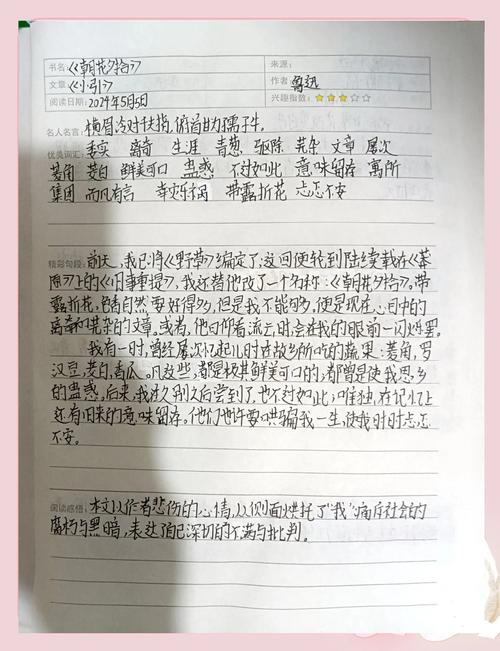 书名:《朝花夕拾》 来源:
文章:《小引》 作者: 鲁迅
阅读日期: 2024年5月5日 兴趣指数: ★★★☆☆
名人名言: 横眉冷对千夫指,俯首甘为孺子牛。
优美词汇: 委实 离奇 生涯 青葱 驱除 芜杂 文章 屡次
菱角 茭白 鲜美可口 蛊惑 不过如此 意味留存 寓所
集团 而已有言 幸灾乐祸 带露折花 忐忑不安
精彩句段: 前天,我已将《野草》编定了;这回便轮到陆续载在《莽
原》上的《旧事重提》,我还替他改了一个名称:《朝花夕拾》。带
露折花,色香自然要好得多,但是我不能够,便是现在心目中的
离奇和芜杂的文章,或者,他日仰看流云时,会在我的眼前一闪烁罢。
我有一时,曾经屡次忆起儿时在故乡所吃的蔬果:菱角,罗
汉豆,茭白,香瓜。凡这些,都是极其鲜美可口的;都曾是使我思乡
的蛊惑。后来,我在久别之后尝到了,也不过如此;唯独,在记忆上
还有旧来的意味留存。他们也许要哄骗我一生,使我时时忐忑
不安。
阅读感悟: 本文以作者悲伤的心情,从侧面烘托了“我”痛斥社会的
腐朽与黑暗,表达了自己深切的不满与批判。